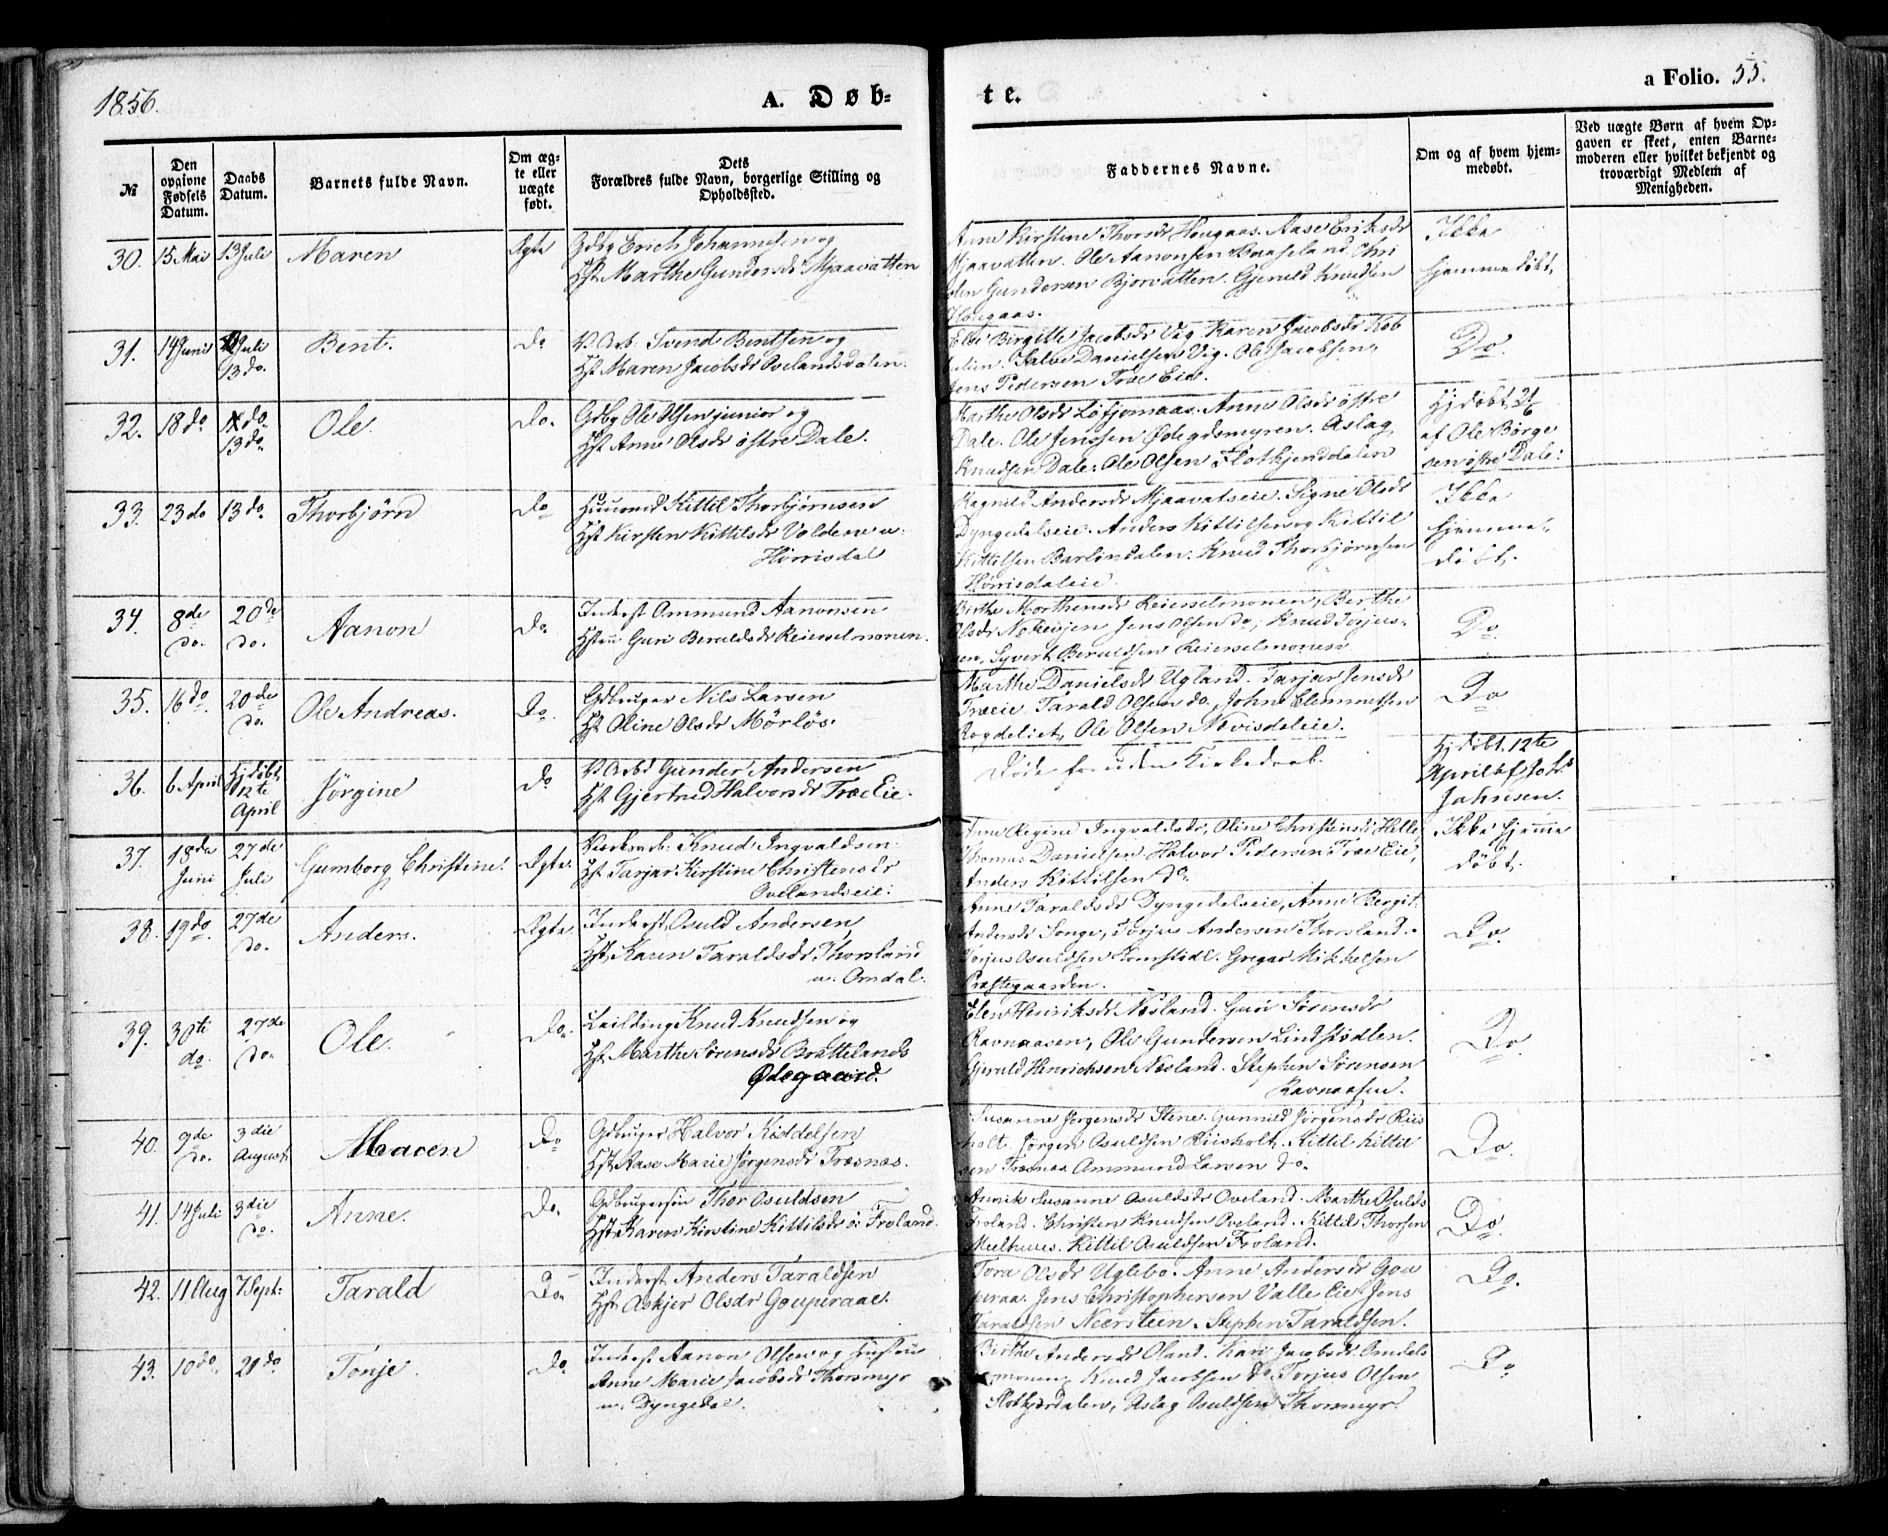 1856.
A. Døb-
te.
a Folio. 55.
№
Den opgivne Fødsels Datum.
Daabs Datum.
Barnets fulde Navn.
Om ægte eller uægte født.
Dets Forældres fulde Navn, borgerlige Stilling og Opholdssted.
Faddernes Navne.
Om og af hvem hjemmedøbt.
Ved uægte Børn af hvem Opgaven er skeet, enten Barnemoderen eller hvilket bekjendt og troværdigt Medlem af Menigheden.
30. 15 Mai 13 Juli Maren Ægte
Gdbg Erich Johannesen og
Hst Marthe Gundersdr Mjaavatten
Anne Kirstine Thorsdr Hougaas. Aase Eriksdr
Mjaavatten. Ole Aanonsen Baaseland. Chri
sten Gundersen Bjorvatten. Gjeruld Knudsen
Hougaas.
Ikke
hjemmedøbt.
31. 14 Juni Juli 13 do. Bent. Do
Svend Bentsen og
Hst Maren Jacobsdr Ovelandsdalen.
Else Birgitte Jacobsdr Vig. Karen Jacobsdr
Halvor Danielsen Vig. Ole Jacobsen,
Jens Pedersen Træ Eie.
Do.
32. 18 do do. 13 do. Ole Do.
Gdbg Ole Olsen junior og
Hst Anne Olsdr østre Dale.
Marthe Olsdr Løfjomaas. Anne Olsdr østre
Dale. Ole Jenssen Ødegrsmyren. Aslag
Knudsen Dale. Ole Olsen Flotkjenddalen
Hj.døbt 21/6
af Ole Børge
sen østre Dale:
33. 23 do 13 do. Thorbjørn Do
Huusmd Kittil Thorbjørnsen
Hst Kirsten Kittilsdr Voldene u:
Hørrisdal
Ragnild Andersdr Mjaavatseie. Signe Olsdr
Dyngedalseie. Anders Kittilsen og Kittil
Kittilsen Barlindalen. Knud Thorbjørnsen
Hørrisdaleie
Ikke
hjemme-
døbt.
34. 8de do. 20de do. Aanon Do
Inderst Ommund Aanonsen
Hstru Guri Beruldsdr Reierselmonen.
Birthe Morthensdr Reierselmonen, Berthe
Olsdr Jens Olsen do, Knud Torjus-
sen, Syvert Beruldsen Reierselmonen
Do.
35. 16 do. 20de do. Ole Andreas. Do.
Gdbruger Nils Larsen
Hst Oline Olsdr Mörløs.
Marthe Danielsdr Ugland. Tarjar Jensdr
Træeie, Tarald Olsen do, John Clemmetsen
Rogdeliet, Ole Olsen Nævisdaleie.
Do
36. 6 April Hj.døbt 12te April Jörgine Do
V Arbd Gunder Andersen
Hst Gjertrud Halvorsdr Træ Eie.
Døde foruden Kirkedaab.
Hj.døbt 12te
April af
Johnsen.
37. 18de Juni 27de Juli Gumborg Christine. Ægte.
Knud Ingvaldsen
Hst Tarjar Kirstine Christensdr
Ovelandseie:
Anne Regine Ingvaldsdr, Oline Christensdr Helle
Thomas Danielsen Halvor Pedersen Træ Eie,
Anders Kittilsen do.
Ikke hjemme
døbt.
38. 19 do. 27de do. Anders. Ægte
Inderst Osuld Andersen,
Hst Karen Taraldsdr Thorsland
u. Omdal.
Anne Taraldsdr Dyngedalseie, Anne Bergit.
Andersdr Songe, Torjus Andersen Thorsland.
Torjus Osuldsen Gregar Mikkelsen
Præstegaarden.
Do.
39. 30ti do. 27de do. Ole. Do.
Leilding Knud Knudsen og
Hst Marthe Sørensdr Brattelands
Ødegaard.
Elen Henriksdr Næsland. Guri Sørensdr
Ravnaasen, Ole Gundersen Lindstødlen.
Gjeruld Henrichsen Næsland. Stephen Sørensen
Ravnaasen.
Do.
40. 9de do. 3die August Maren Do
Gdbruger Halvor Kiddelsen
Hst Aase Marie Jörgensdr Træsnæs.
Susanne Jörgensdr Stene. Gunnild Jörgensdr Riis
holt. Jörgen Osuldsen Riisholt. Kittil Kittil
sen Træsnæs Ommund Larsen do.
Do.
41. 14 Juli 3die do. Anne. Do.
Gdbrugersøn Thor Osuldsen
Hst Karen Kirstine Kittilsdr ö: Froland.
Susanne Osuldsdr Oveland. Marthe Osulds
Froland. Christen Knudsen Oveland. Kittil Thorsen
Mælhuus. Kittil Osuldsen Froland.
Do.
42. 11 Aug 7 Sept: Tarald Do.
Inderst Anders Taraldsen
Hst Askjer Olsdr Gauperaae.
Tora Olsdr Uglebo. Anne Andersdr Gau
peraa. Jens Christophersen Valle Eie. Jens
Taraldsen Neersteen. Stephen Taraldsen.
Do.
43. 10 do. 20 do Tonje. Do
Inderst Aanon Olsen og Hustru
Anne Marie Jacobsdr Thorsmyr
u. Dyngedal.
Birthe Andersdr Oland. Kari Jacobsdr Omdals
monen Knud Jacobsen do. Torjus Olsen
Flotkjærdalen, Aslag Osuldsen Thorsmyr.
Do